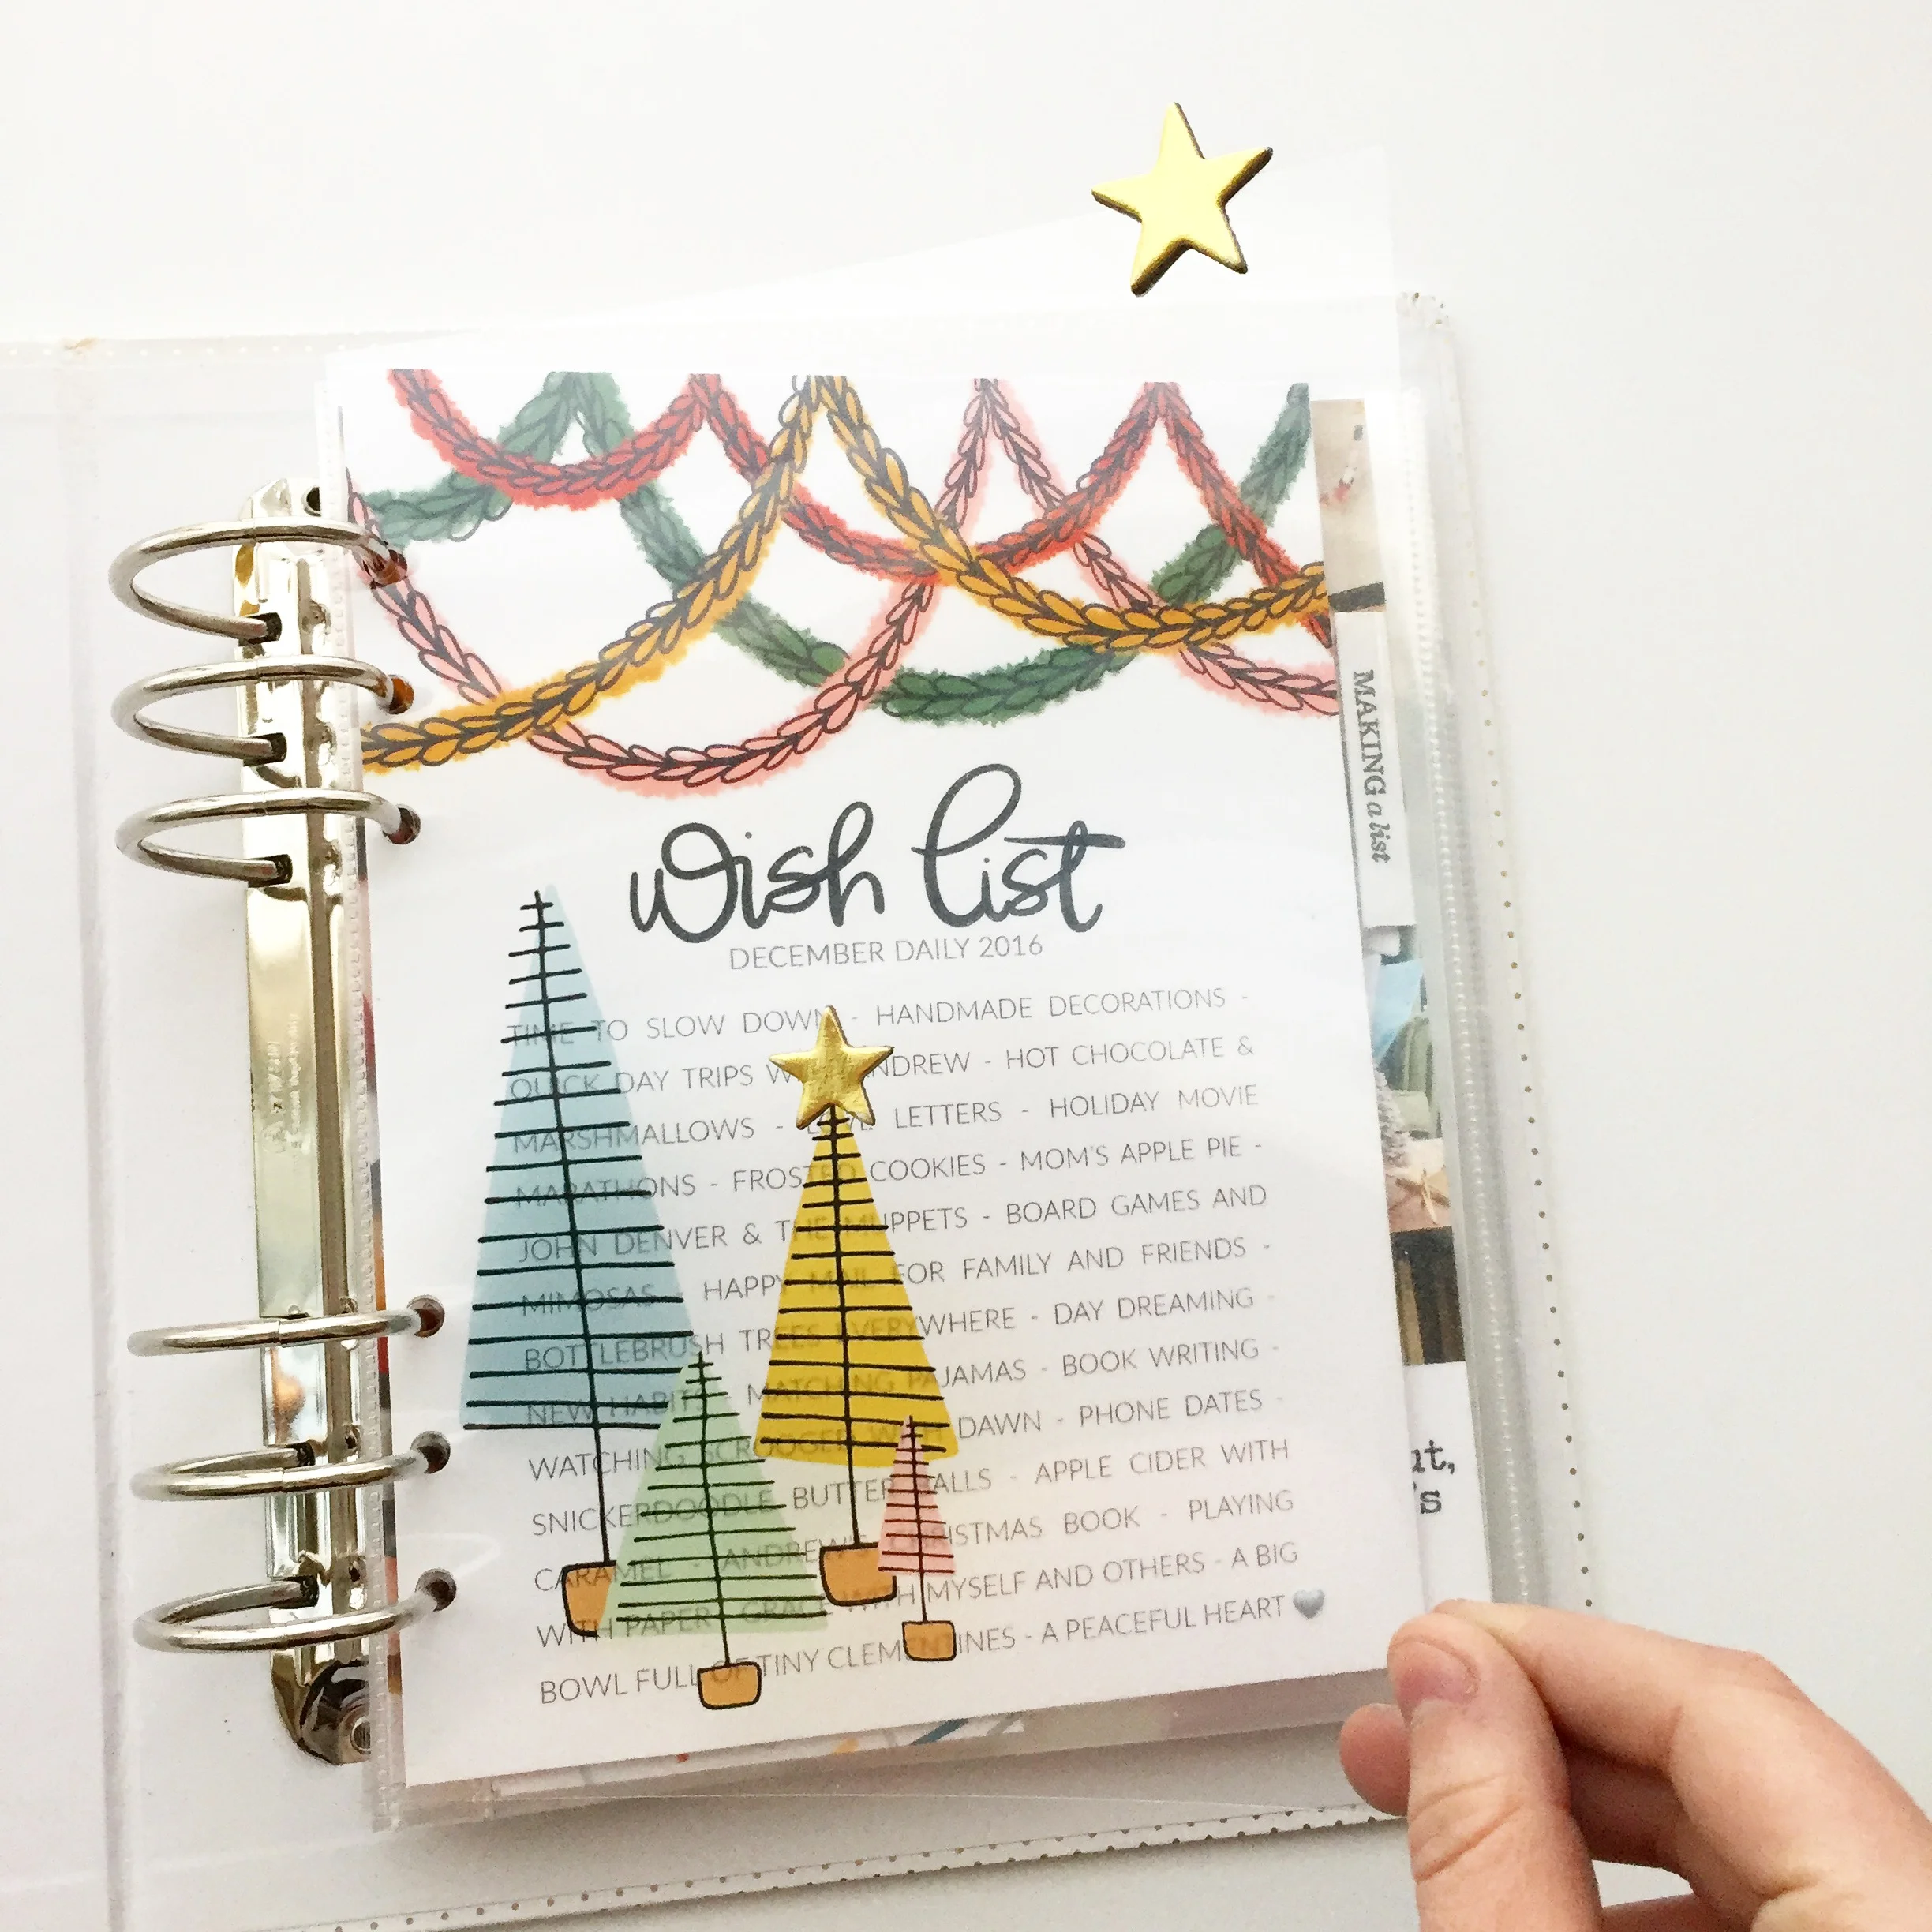 wish list
DECEMBER DAILY 2016
TIME TO SLOW DOWN - HANDMADE DECORATIONS -
QUICK DAY TRIPS WITH ANDREW - HOT CHOCOLATE &
MARSHMALLOWS - LETTERS - HOLIDAY MOVIE
MARATHONS - FROSTED COOKIES - MOM'S APPLE PIE -
JOHN DENVER & THE MUPPETS - BOARD GAMES AND
MIMOSAS - HAPPY MAIL FOR FAMILY AND FRIENDS -
BOTTLEBRUSH TREES EVERYWHERE - DAY DREAMING -
NEW HABITS - MATCHING PAJAMAS - BOOK WRITING -
WATCHING SCROOGED WITH DAWN - PHONE DATES -
SNICKERDOODLE BUTTER BALLS - APPLE CIDER WITH
CARAMEL - ANDREW'S CHRISTMAS BOOK - PLAYING
WITH PAPER - GRACE WITH MYSELF AND OTHERS - A BIG
BOWL FULL OF TINY CLEMENTINES - A PEACEFUL HEART
MAKING a list
ut,
's